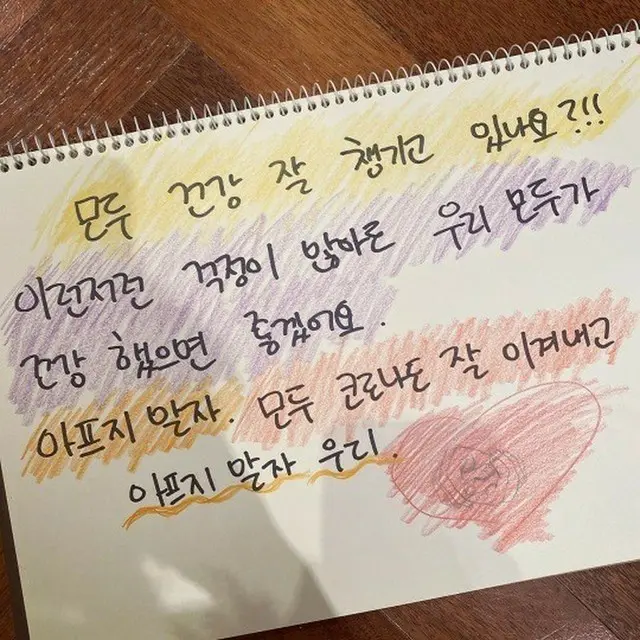 모두 건강 잘 챙기고 있나요?!!
이런저런 걱정이 많아는 우리 모두가
건강 했으면 좋겠어요.
아프지 말자. 모두 코로나도 잘 이겨내고
아프지 말자 우리.